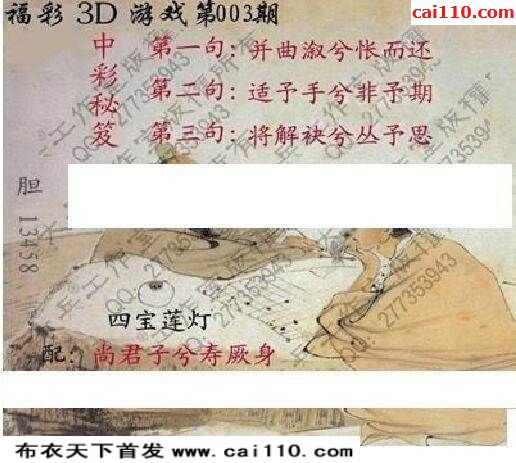 福彩 3D 游戏第003期
cai110.com
中彩秘笈
第一句：并曲溆兮怅而还
第二句：适予手兮非予期
第三句：将解袂兮丛予思
胆 13458
四宝莲灯
配：尚君子兮寿厥身
布衣天下首发 www.cai110.com
QQ:277353943
工作室版權所有